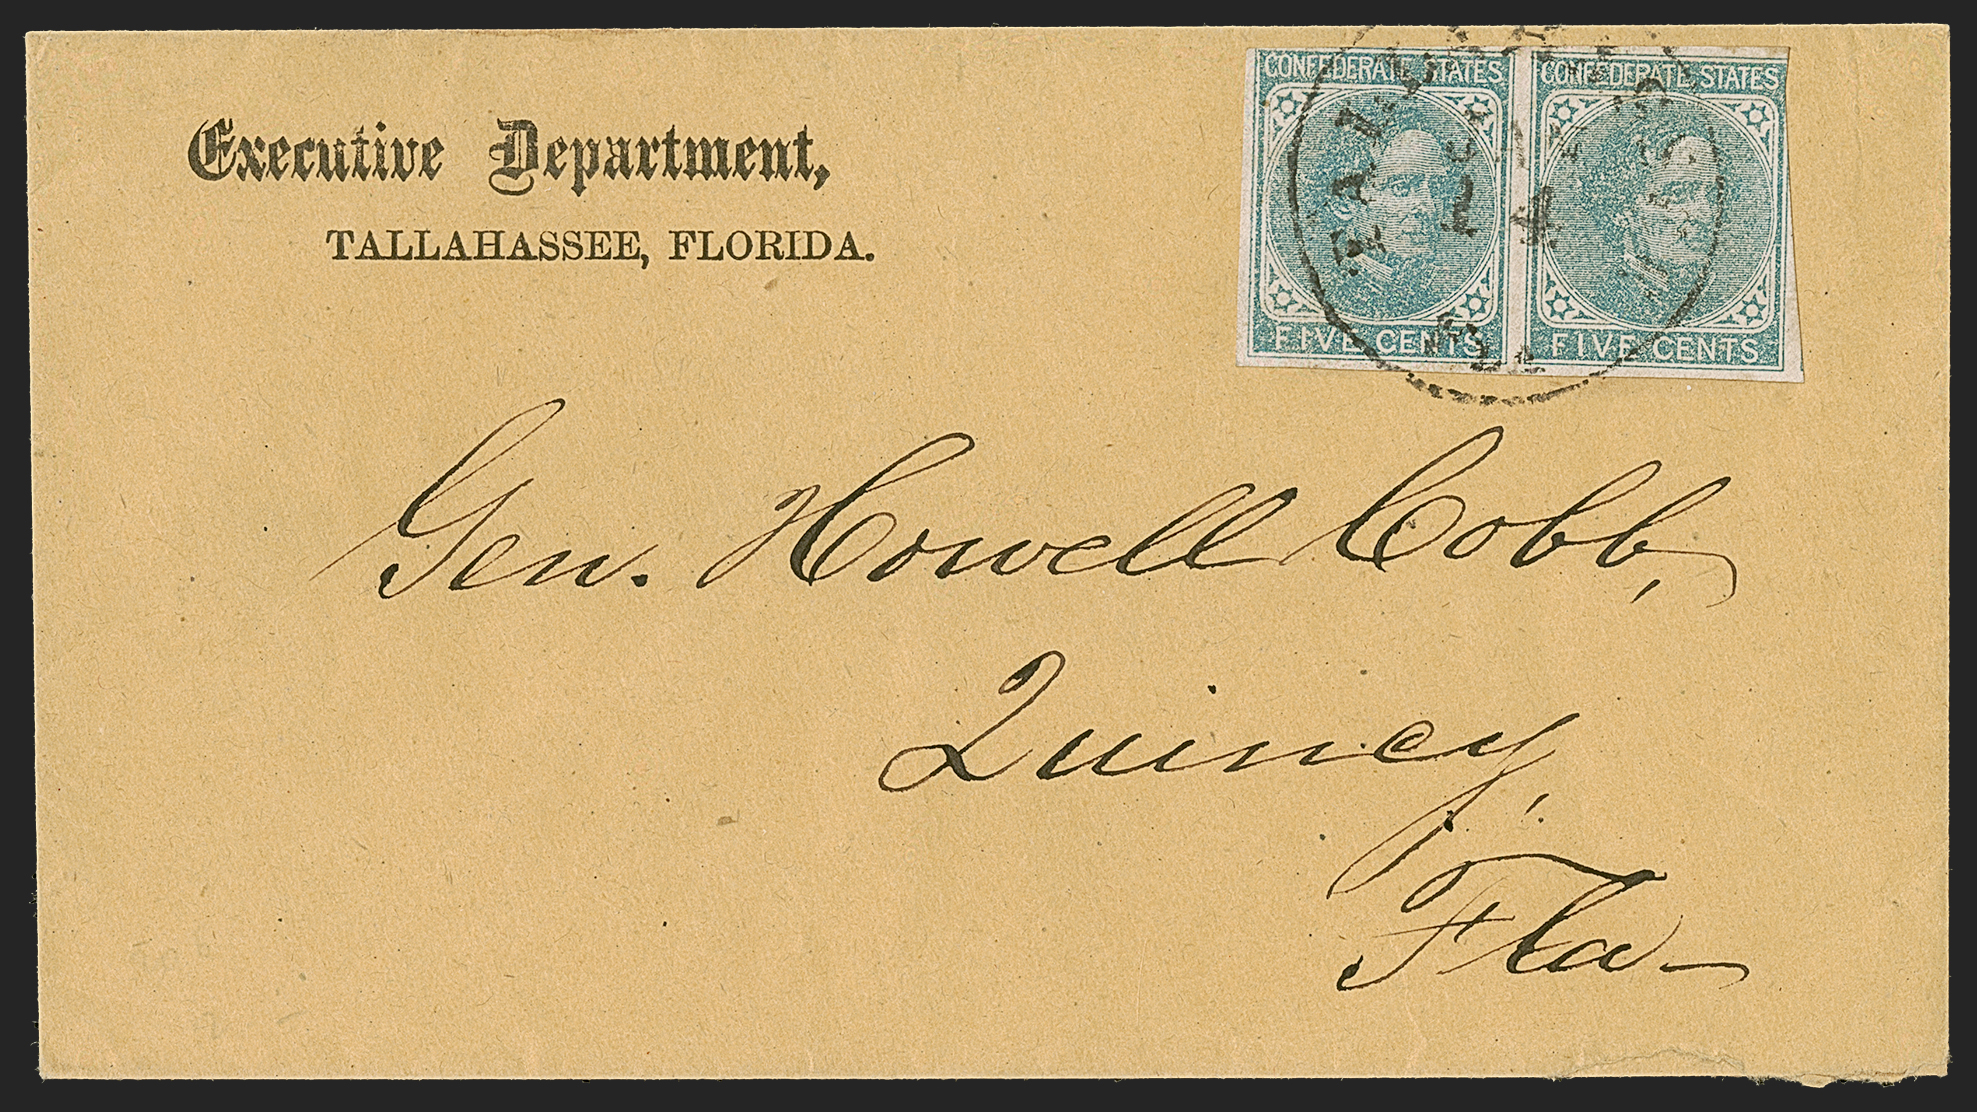 Executive Department,
TALLAHASSEE, FLORIDA.
CONFEDERATE STATES
FIVE CENTS
CONFEDERATE STATES
FIVE CENTS
Gen. Howell Cobb,
Quincy,
Fla